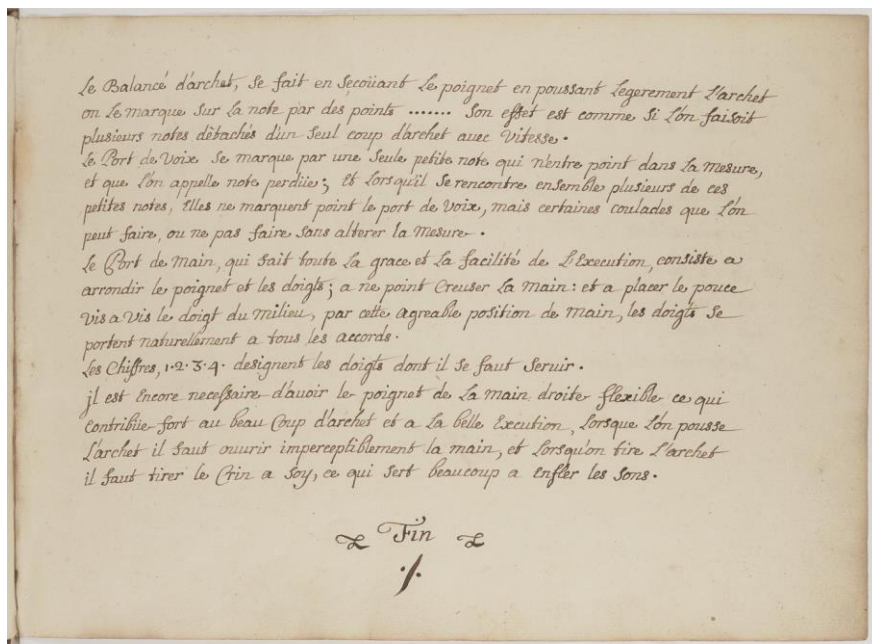 Le Balancé d'archet, se fait en secoüant le poignet en poussant legerement l'archet
on le marque sur la note par des points ....... son effét est comme si l'on faisoit
plusieurs notes détachés d'un seul coup d'archet avec vitesse.
Le Port de voix se marque par une seule petite note qui n'entre point dans la mesure,
et que l'on appelle note perdüe; et lorsqu'il se rencontre ensemble plusieurs de ces
petites notes, elles ne marquent point le port de voix, mais certaines coulades que l'on
peut faire, ou ne pas faire sans alterer la mesure.
Le Port de main, qui fait toute la grace et la facilité de l'Execution, consiste a
arrondir le poignet et les doigts; a ne point creuser la main: et a placer le pouce
vis a vis le doigt du milieu, par cette agreable position de main, les doigts se
portent naturellement a tous les accords.
Les Chiffres, 1.2.3.4. designent les doigts dont il se faut servir.
jl est encore necessaire d'avoir le poignet de la main droite flexible ce qui
contribüe fort au beau coup d'archet et a la belle Execution, lorsque l'on pousse
l'archet il faut ouvrir imperceptiblement la main, et lorsqu'on tire l'archet
il faut tirer le Crin a soy, ce qui sert beaucoup a enfler les sons.
Fin